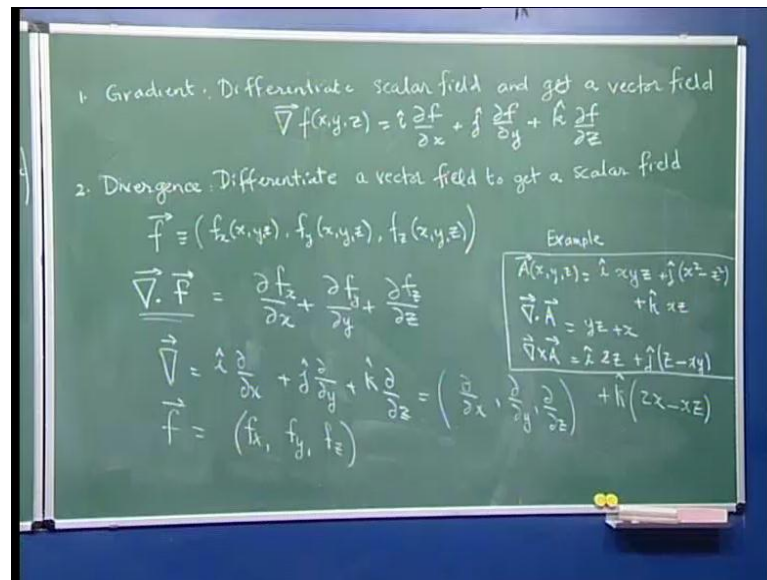 1. Gradient: Differentiate scalar field and get a vector field
∇⃗ f(x,y,z) = î ∂f/∂x + ĵ ∂f/∂y + k̂ ∂f/∂z
2. Divergence: Differentiate a vector field to get a scalar field
f⃗ ≡ (fx(x,y,z), fy(x,y,z), fz(x,y,z))
∇⃗. f⃗ = ∂fx/∂x + ∂fy/∂y + ∂fz/∂z
∇⃗ = î ∂/∂x + ĵ ∂/∂y + k̂ ∂/∂z = (∂/∂x, ∂/∂y, ∂/∂z)
f⃗ = (fx, fy, fz)
Example
A⃗(x,y,z) = î xyz + ĵ(x² - z²)
+ k̂ xz
∇⃗.A⃗ = yz + x
∇⃗xA⃗ = î 2z + ĵ(z - xy)
+ k̂(2x - xz)